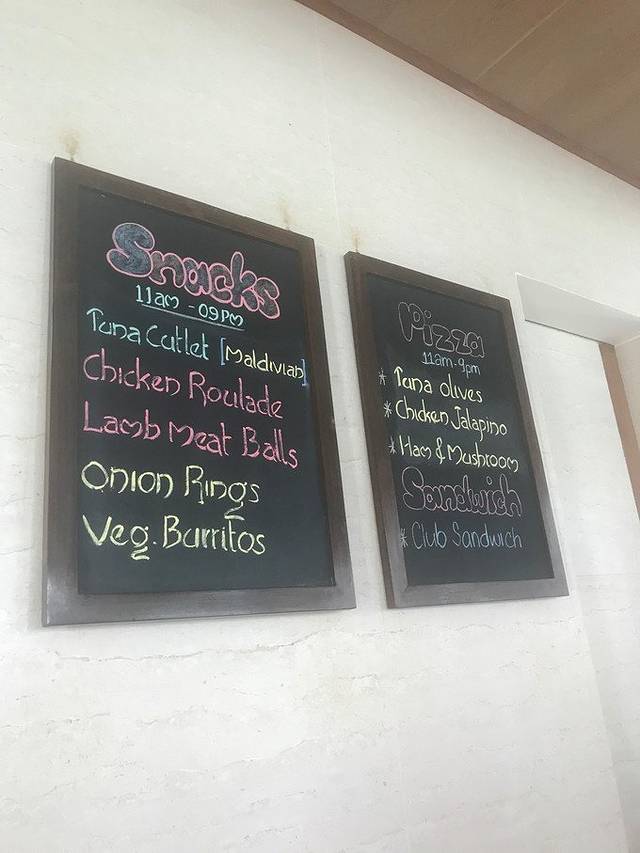 Snacks
11am - 09PM
Tuna Cutlet [Maldivian]
Chicken Roulade
Lamb Meat Balls
Onion Rings
Veg. Burritos
Pizza
11am-9pm
* Tuna Olives
* Chicken Jalapino
* Ham & Mushroom
Sandwich
* Club Sandwich